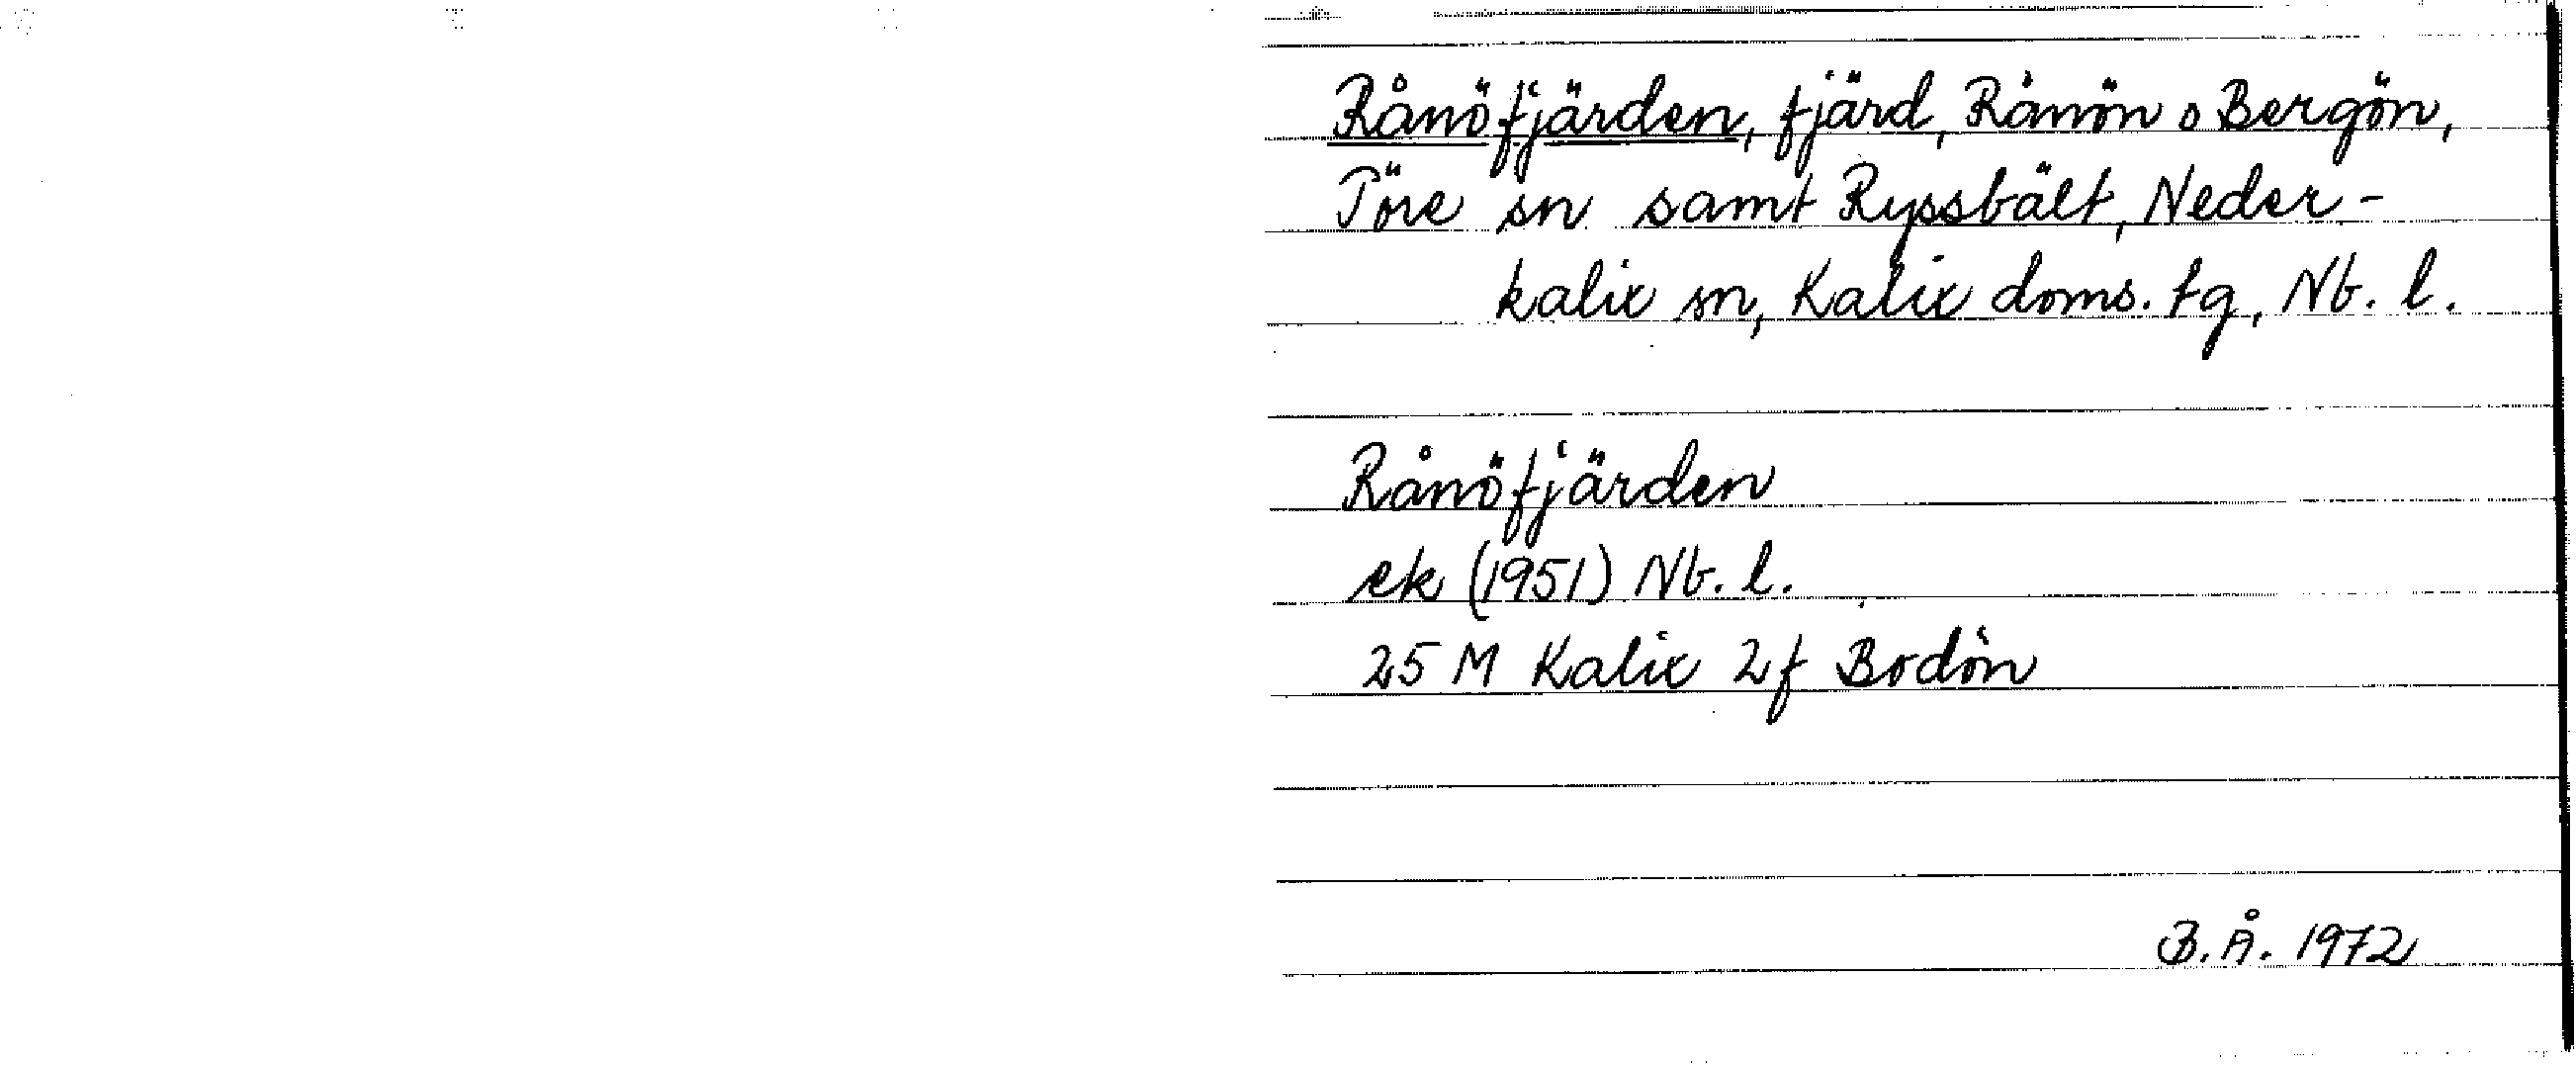 Rånöfjärden, fjärd, Rånön o Bergön,
Töre sn samt Ryssbält, Neder-
kalix sn, Kalix doms. tg, Nb. l.
Rånöfjärden
ek (1951) Nb. l.
25 M Kalix 2f Bodön
B.Å. 1972